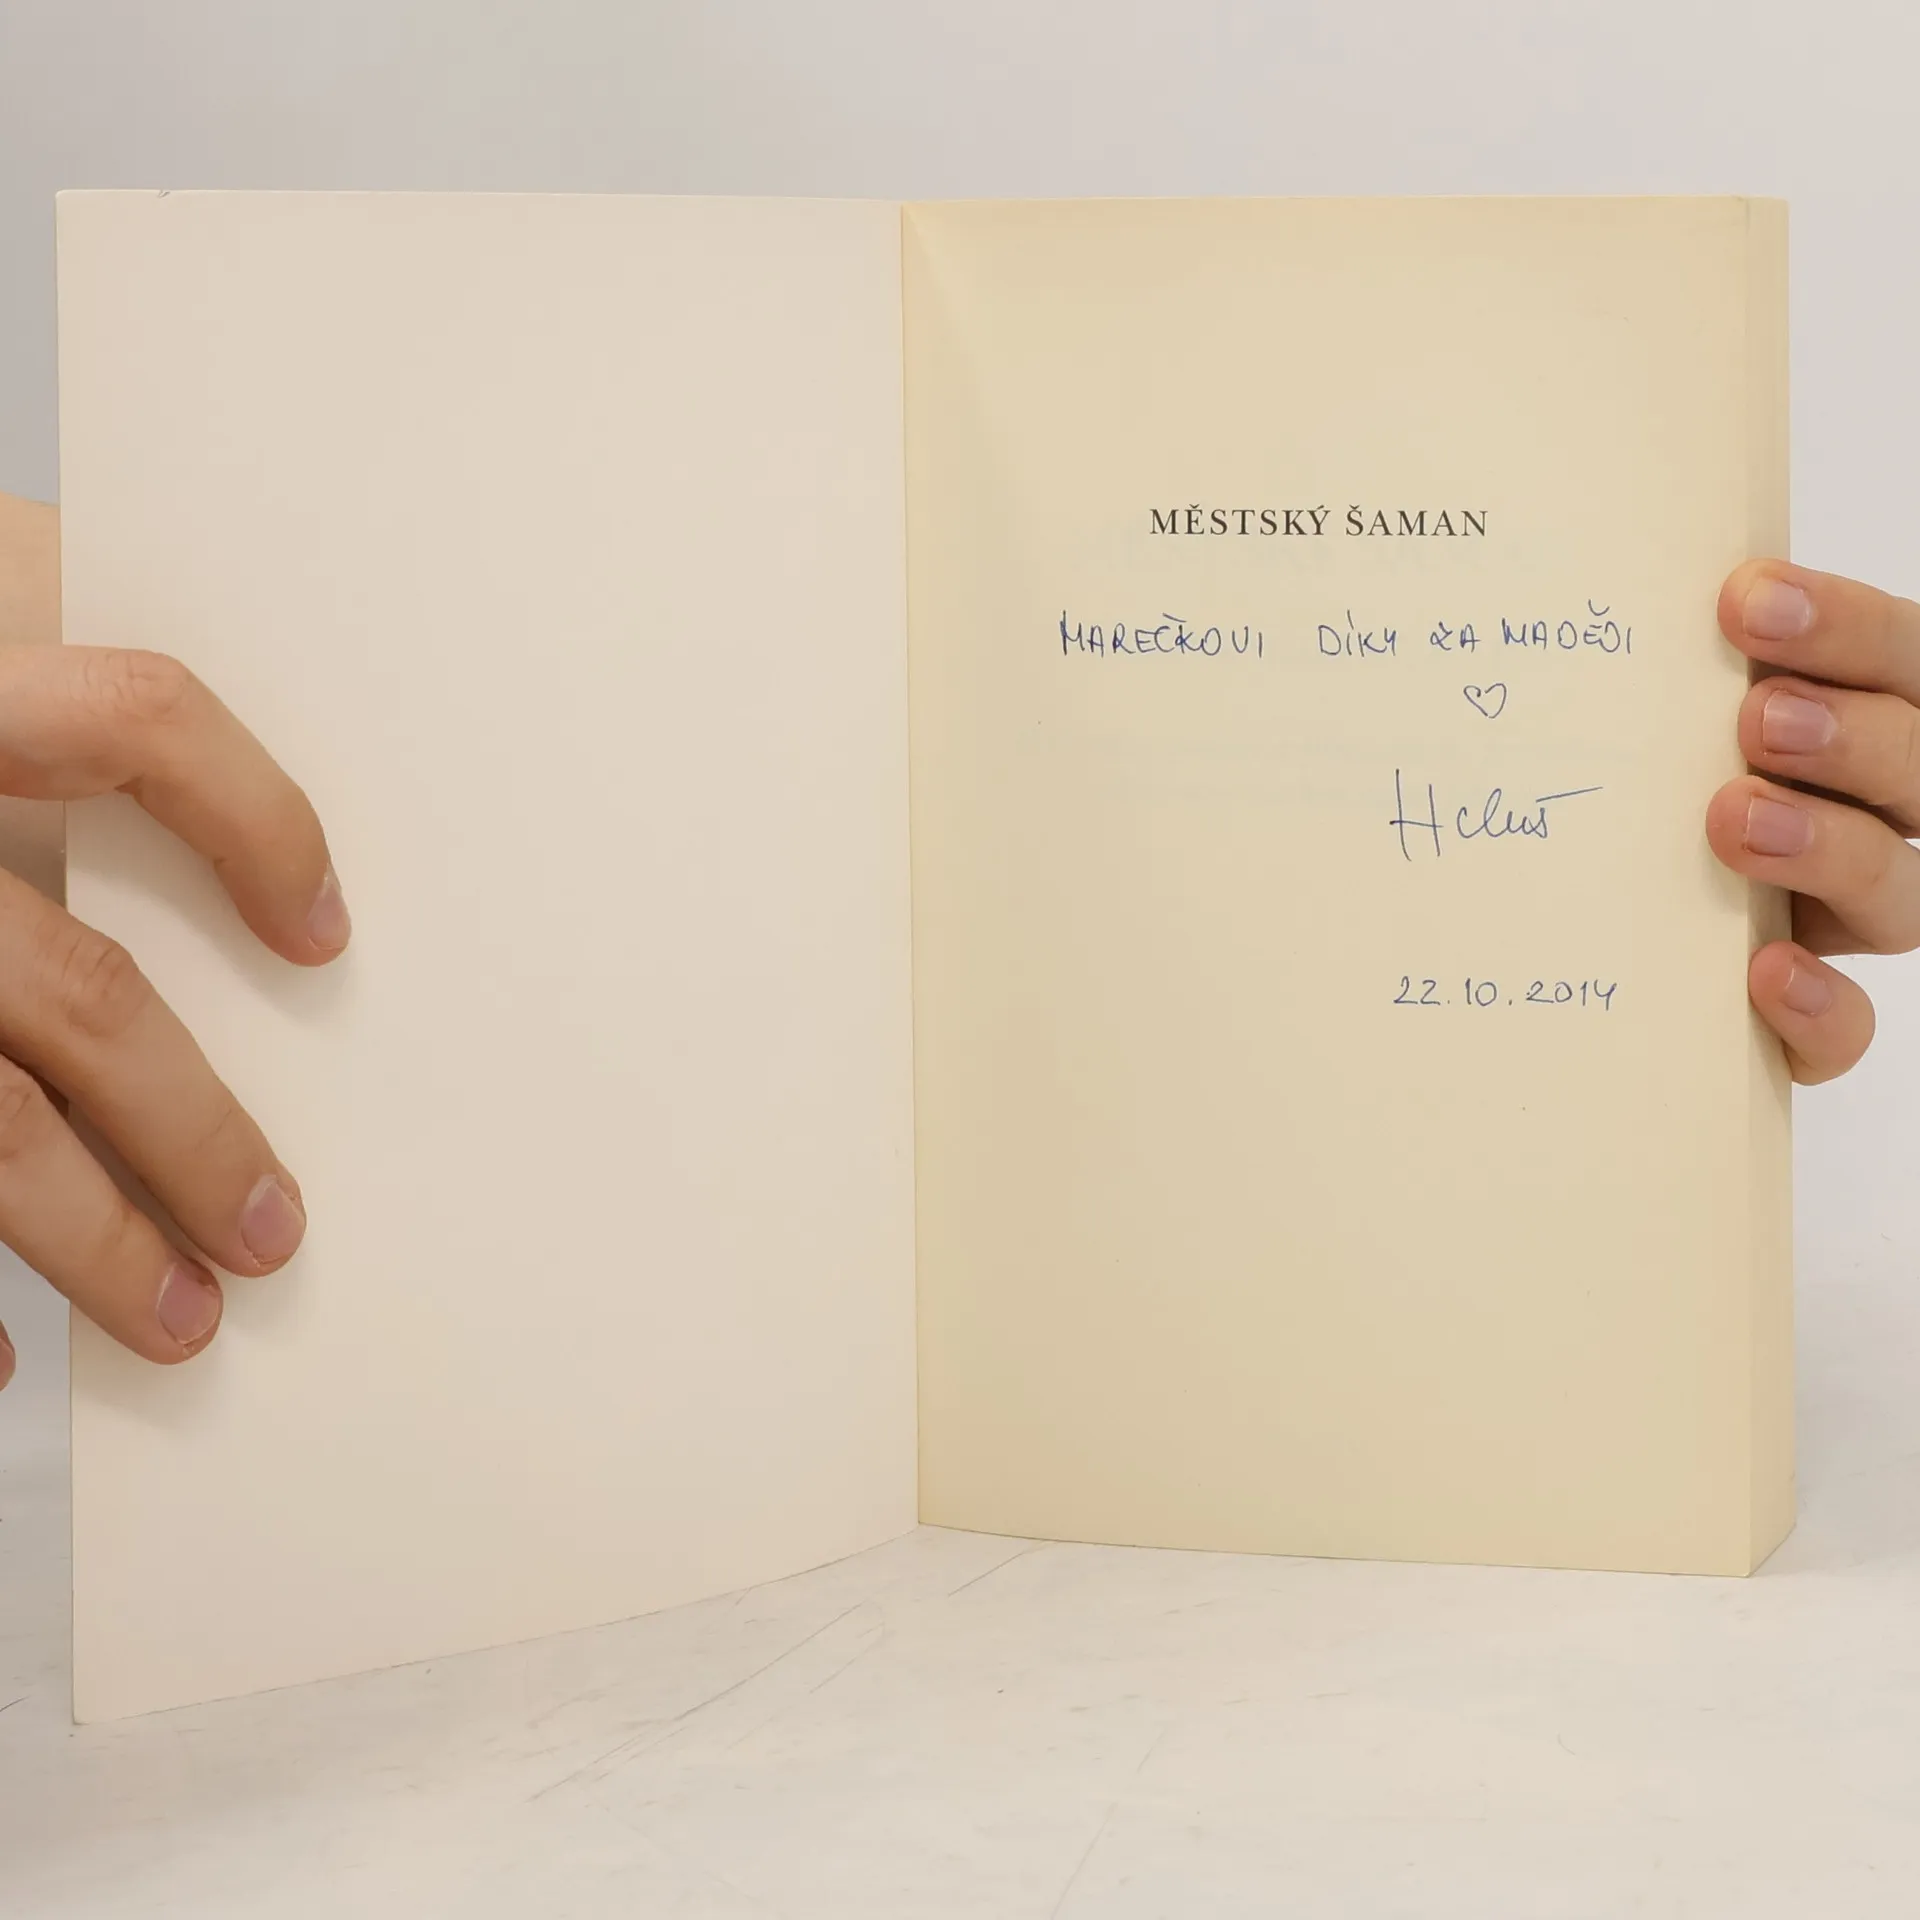 MĚSTSKÝ ŠAMAN
MAREČKOVI DÍKY ZA NADĚJI
♡
Heluš
22.10.2014